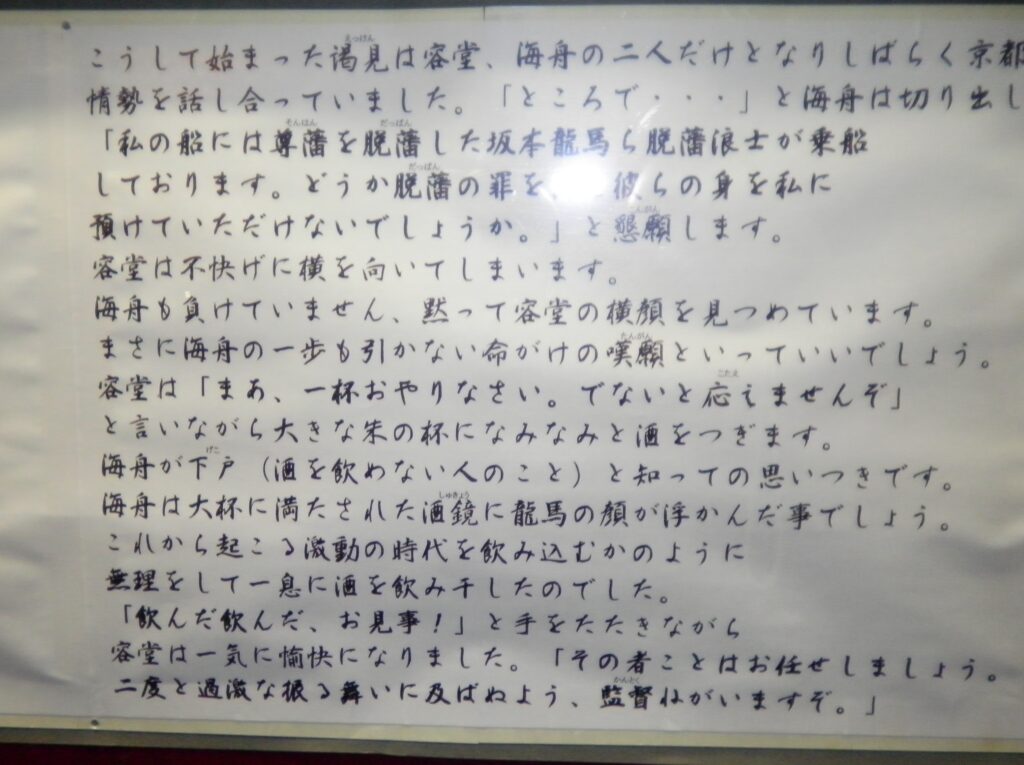 こうして始まった謁見は容堂、海舟の二人だけとなりしばらく京都
情勢を話し合っていました。「ところで・・・」と海舟は切り出し
「私の船には尊藩を脱藩した坂本龍馬ら脱藩浪士が乗船
しております。どうか脱藩の罪を、 彼らの身を私に
預けていただけないでしょうか。」と懇願します。
容堂は不快げに横を向いてしまいます。
海舟も負けていません、黙って容堂の横顔を見つめています。
まさに海舟の一歩も引かない命がけの嘆願といっていいでしょう。
容堂は「まあ、一杯おやりなさい。でないと応えませんぞ」
と言いながら大きな朱の杯になみなみと酒をつぎます。
海舟が下戸（酒を飲めない人のこと）と知っての思いつきです。
海舟は大杯に満たされた酒鏡に龍馬の顔が浮かんだ事でしょう。
これから起こる激動の時代を飲み込むかのように
無理をして一息に酒を飲み干したのでした。
「飲んだ飲んだ、お見事！」と手をたたきながら
容堂は一気に愉快になりました。「その者ことはお任せしましょう。
二度と過激な振る舞いに及ばぬよう、監督ねがいますぞ。」